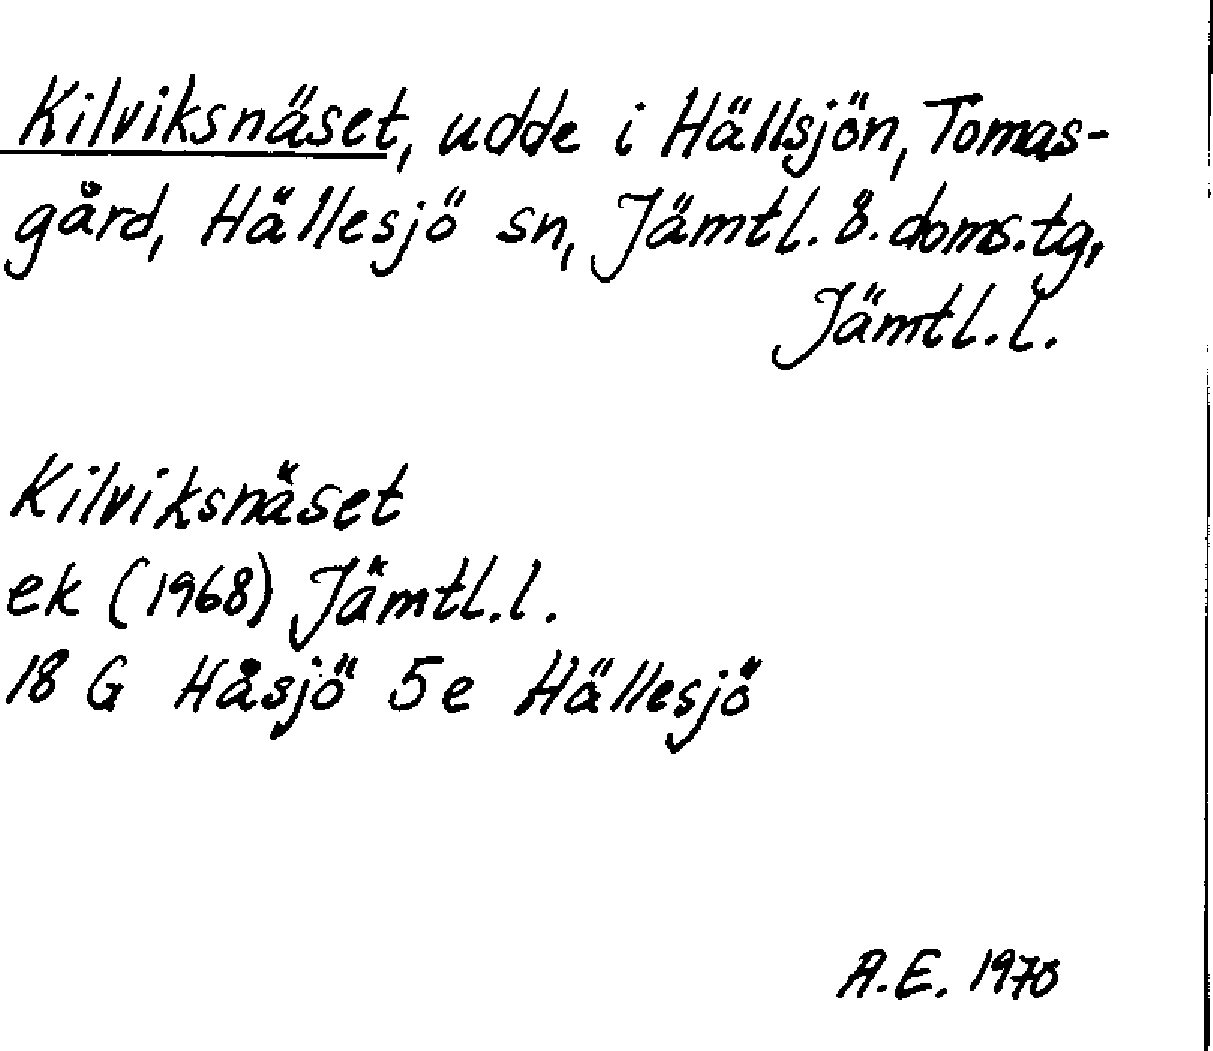 Kilviksnäset, udde i Hällsjön, Tomas-
gård, Hällesjö sn, Jämtl. ö. doms.tg,
Jämtl.l.
Kilviksnäset
ek (1968) Jämtl.l.
18 G Håsjö 5e Hällesjö
A.E. 1970